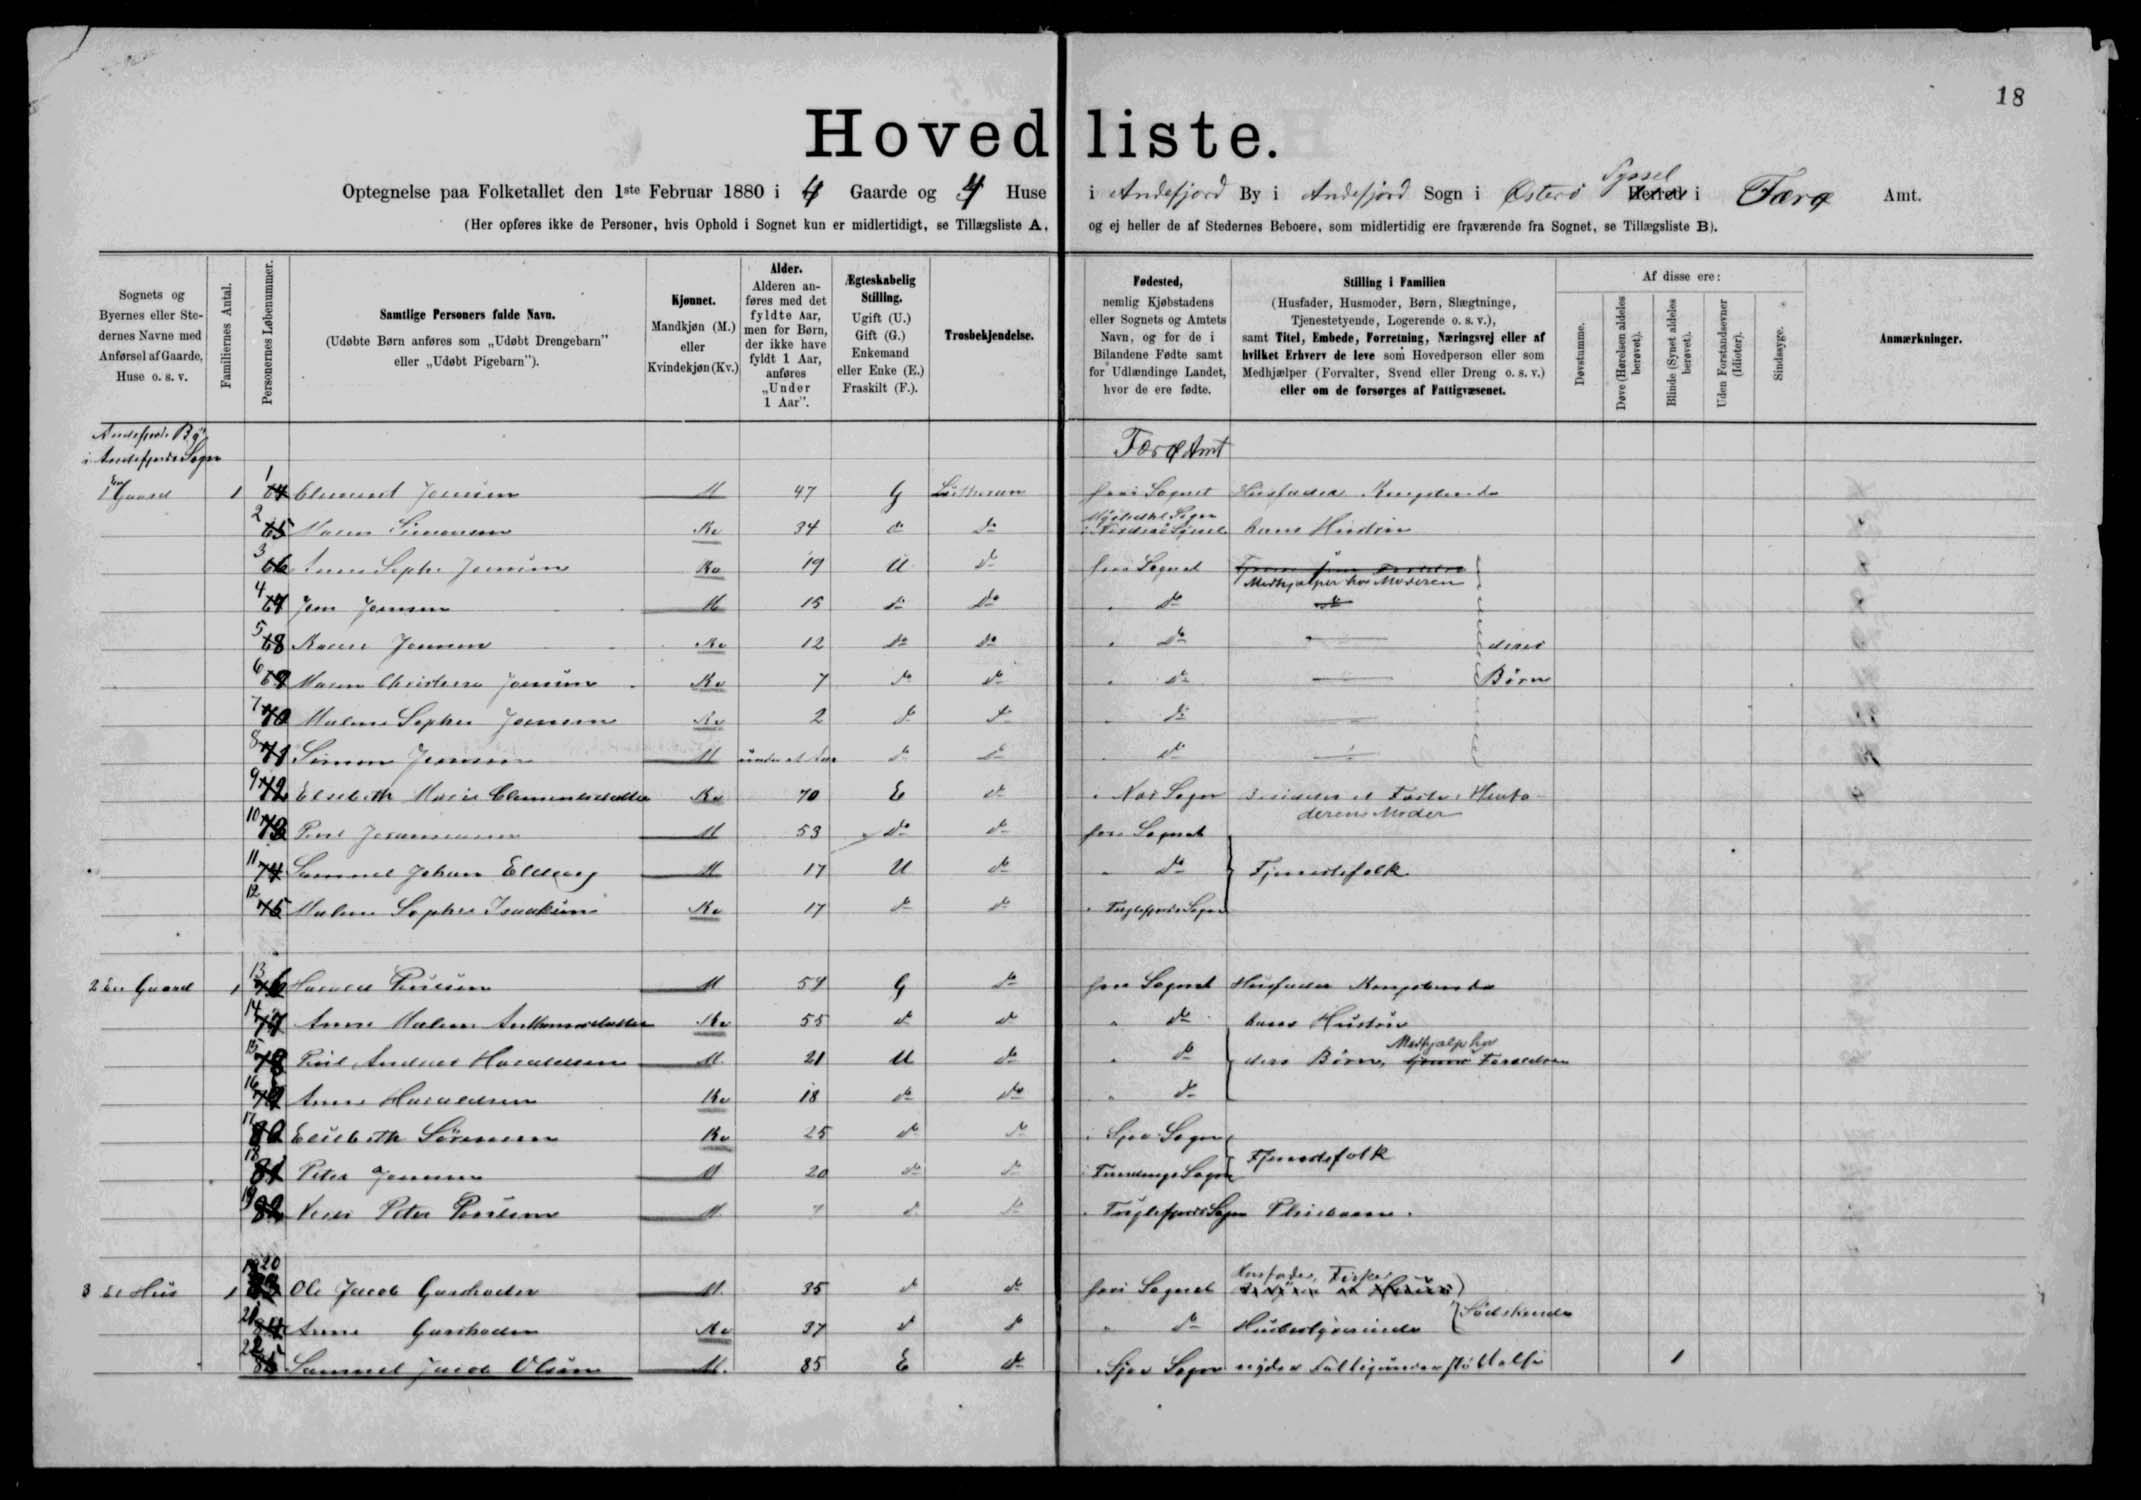 18
Hovedliste.
Optegnelse paa Folketallet den 1ste Februar 1880 i 4 Gaarde og 4 Huse i Andefjord By i Andefjord Sogn i Østerø Syssel Herred i Færø Amt.
(Her opføres ikke de Personer, hvis Ophold i Sognet kun er midlertidigt, se Tillægsliste A, og ej heller de af Stedernes Beboere, som midlertidig ere fraværende fra Sognet, se Tillægsliste B).
Sognets og Byernes eller Stedernes Navne med Anførsel af Gaarde, Huse o. s. v.
Familiernes Antal.
Personernes Løbenummer.
Samtlige Personers fulde Navn.
(Udøbte Børn anføres som „Udøbt Drengebarn" eller „Udøbt Pigebarn").
Kjønnet.
Mandkjøn (M.) eller Kvindekjøn (Kv.)
Alder.
Alderen anføres med det fyldte Aar, men for Børn, der ikke have fyldt 1 Aar, anføres „Under 1 Aar".
Ægteskabelig Stilling.
Ugift (U.) Gift (G.) Enkemand eller Enke (E.) Fraskilt (F.).
Trosbekjendelse.
Fødested,
nemlig Kjøbstadens eller Sognets og Amtets Navn, og for de i Bilandene Fødte samt for Udlændinge Landet, hvor de ere fødte.
Stilling i Familien
(Husfader, Husmoder, Børn, Slægtninge, Tjenestetyende, Logerende o. s. v.),
samt Titel, Embede, Forretning, Næringsvej eller af hvilket Erhverv de leve som Hovedperson eller som Medhjælper (Forvalter, Svend eller Dreng o. s. v.) eller om de forsørges af Fattigvæsenet.
Af disse ere:
Døvstumme.
Døve (Hørelsen aldeles berøvet).
Blinde (Synet aldeles berøvet).
Uden Forstandsevner (Idioter).
Sindssyge.
Anmærkninger.
Andefjords By
i Andefjords Sogn
Færø Amt
1 En Gaard 1 1 64 Clement Joensen M 47 G Lutheran her i Sognet Husfader Kongsbonde
2 65 Maren Simonsen Kv 34 do do Norderø Syssel hans Hustru
3 66 Anne Sophie Joensen Kv 19 U do her i Sognet Medhjælper hos Moderen
4 67 Joen Joensen M 15 do do do do
5 68 Joensen Kv 12 do do do deres
6 69 Maren Christina Joensen Kv 7 do do do Børn
7 70 Malene Sophie Joensen Kv 2 do do do
8 71 Simon Joensen M under et Aar do do do
9 72 Elsebeth Marie Clementsdatter Kv 70 E do i Næs Sogn Husfaderens Moder
10 73 Poul Joensen M 53 do do her i Sognet
11 74 Samuel Johan M 17 U do do Tjenestefolk
12 75 Malene Sophie Isaksen Kv 17 do do i Fuglefjords Sogn
2 En Gaard 1 13 76 Harald Poulsen M 54 G do her i Sognet Husfader Kongsbonde
14 77 Anne Malene Kv 55 do do do hans Hustru
15 78 Poul Andreas Haraldsen M 21 U do do deres Børn, Medhjælp hos Forældrene
16 79 Anne Haraldsen Kv 18 do do do
17 80 Elsebeth Sørensen Kv 25 do do Sogn
18 81 Peter Joensen M 20 do do i Fundings Sogn Tjenestefolk
19 82 Peter Poulsen M 7 do do i Fuglefjords Sogn Pleiebarn
3 Et Hus 1 20 83 Ole Jacob M 35 do do her i Sognet Husfader, Fisker
21 84 Anne Kv 37 do do do Husbestyrerinde Sødskende
22 85 Samuel Jacob Olsen M. 85 E do Sogn nyder Fattigunderstøttelse 1